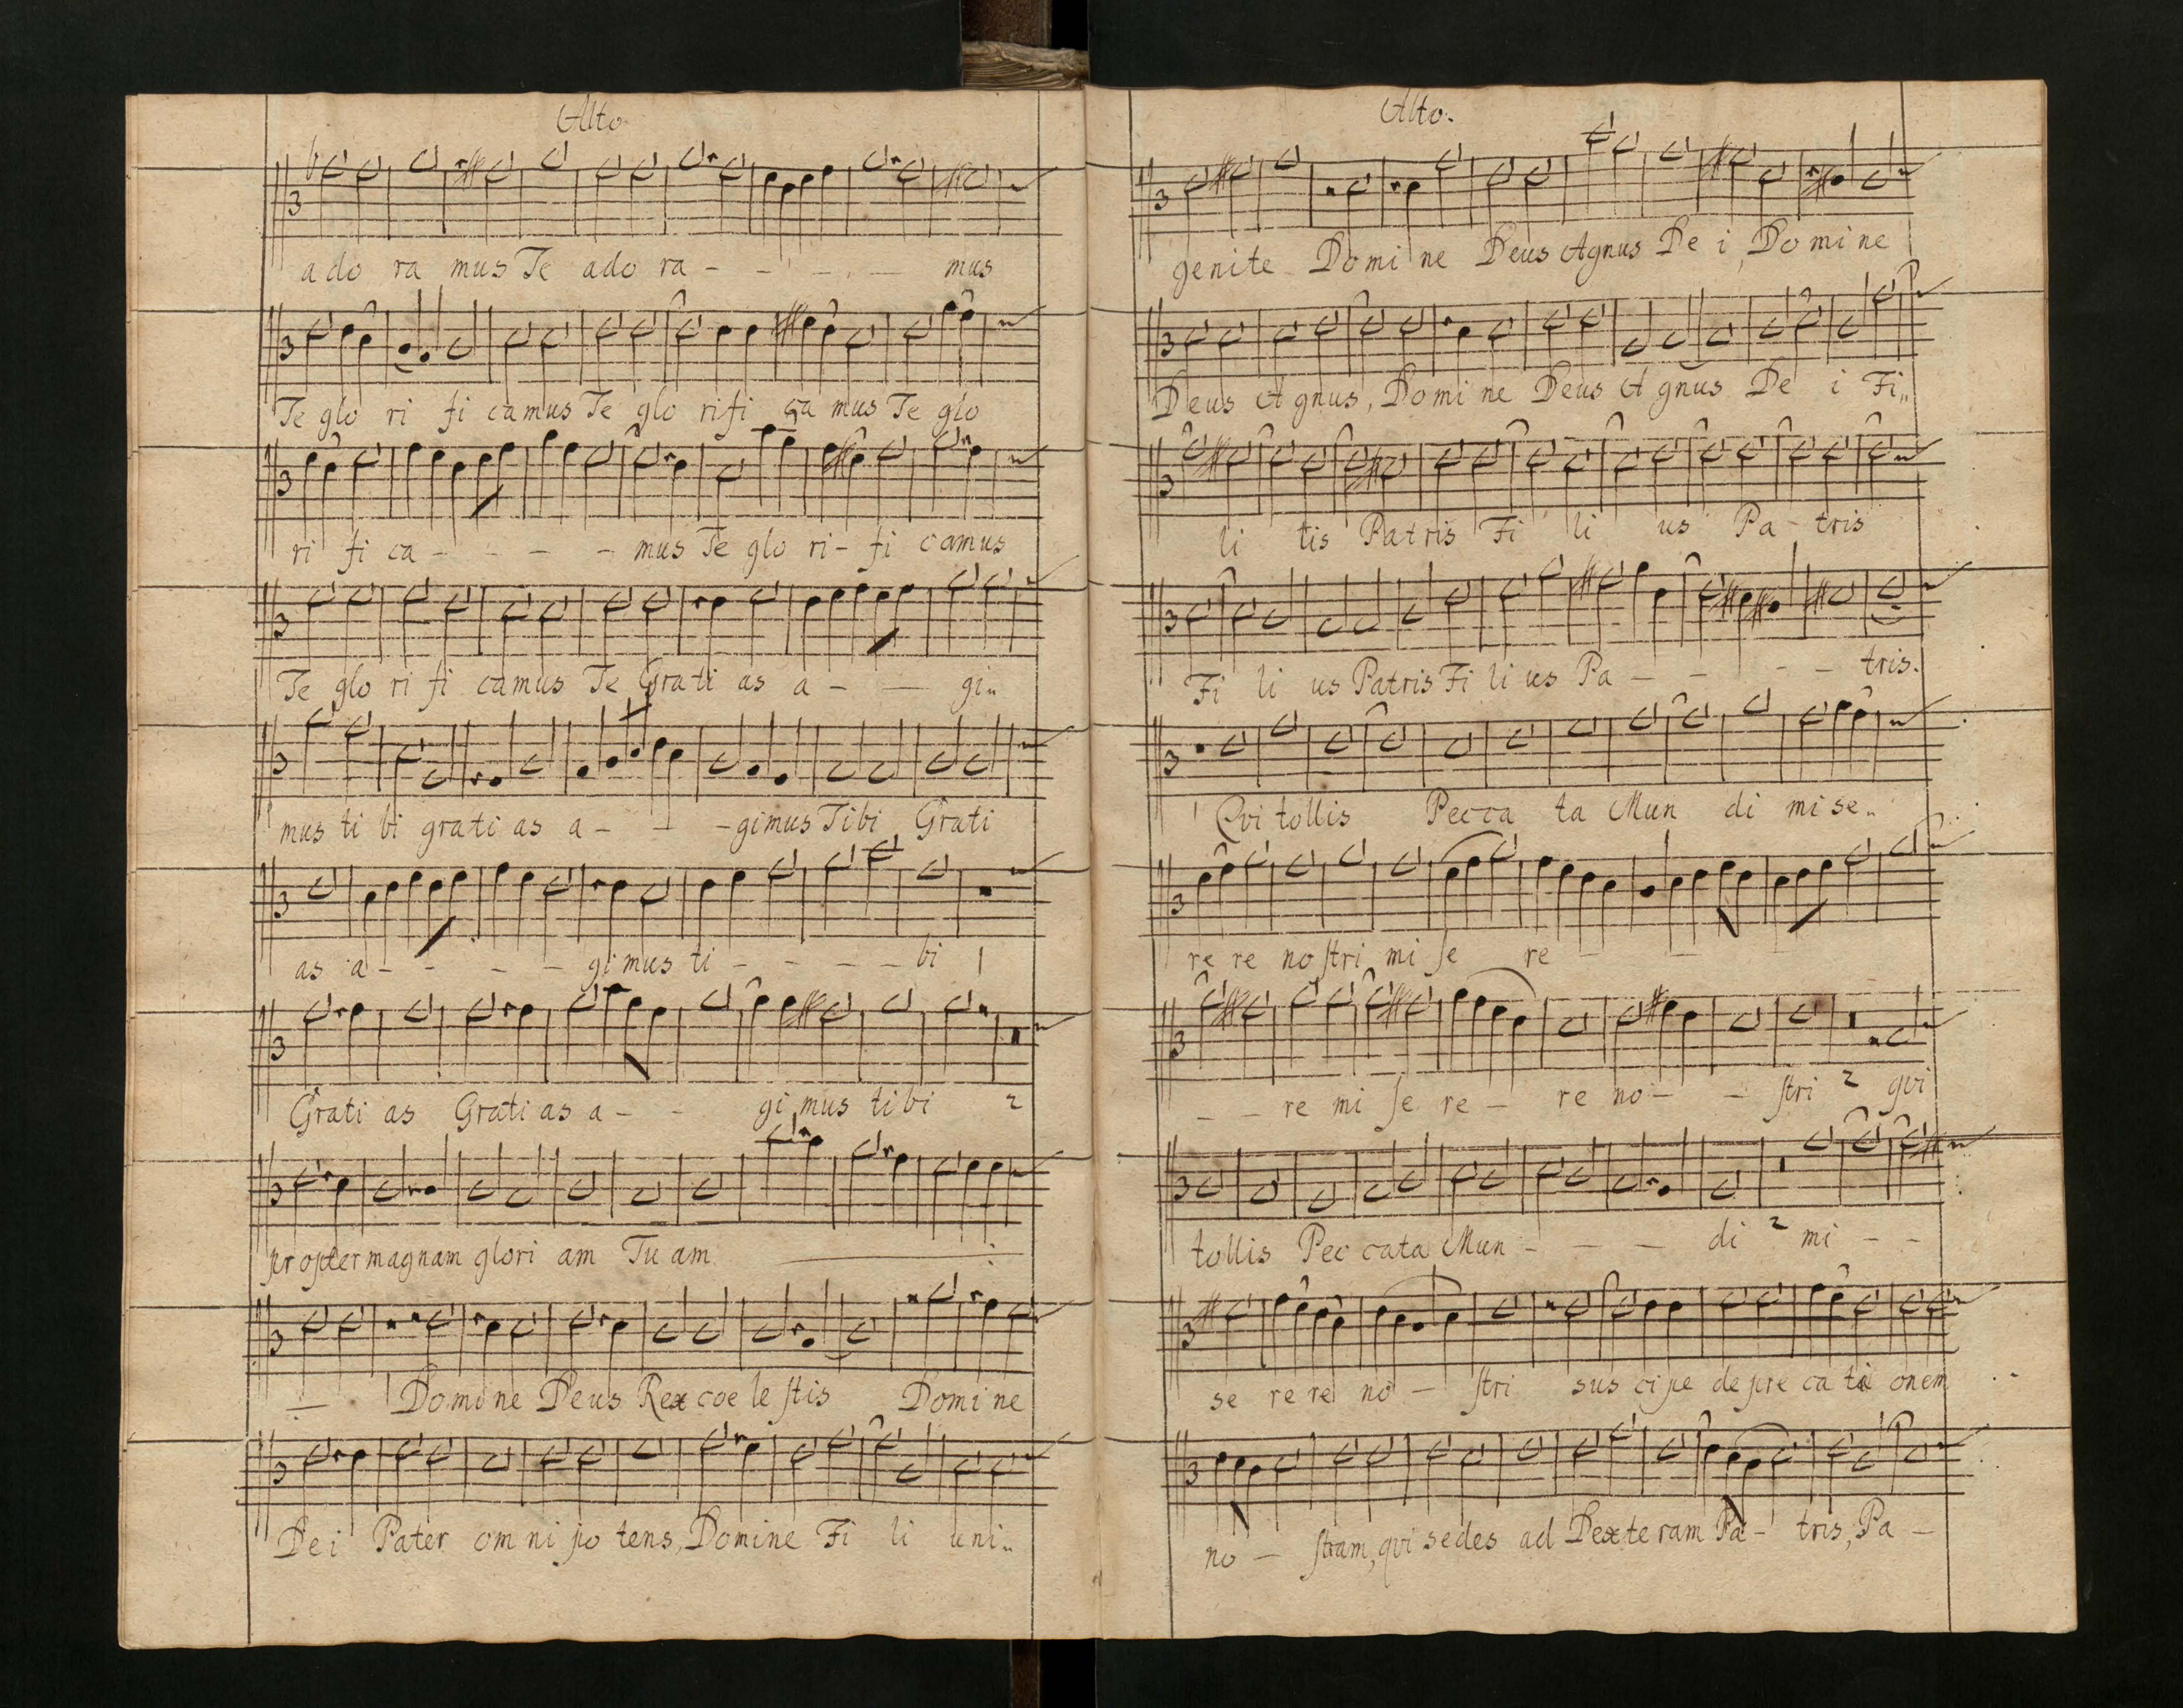 Alto.
a do ra mus Te ado ra - - - - - mus
Te glo ri fi camus Te glo rifi ca mus Te glo
ri fi ca - - - - mus Te glo ri - fi camus
Te glo ri fi camus Te Grati as a - - gi„
mus ti bi grati as a - - - gimus Tibi Grati
as a - - - - gi mus ti - - - - bi 1
Grati as Grati as a - - gi mus tibi 2
propter magnam glori am Tu am
1 Domi ne Deus Rex coe le stis Domi ne
Dei Pater om ni po tens, Domine Fi li uni„
Alto.
genite Domi ne Deus Agnus De i, Do mi ne
Deus A gnus, Domi ne Deus A gnus De i Fi„
li tis Patris Fi li us Pa - tris
Fi li us Patris Fi li us Pa - - - - tris.
1 Qvi tollis Pecca ta Mun di mi se„
re re no stri mi se re - -
- - re mi se re - re no - - stri 2 qvi
tollis Pec cata Mun - - - di 2 mi - -
se re re no - stri sus cipe depre ca ti onem
no - stram, qvi sedes ad Dexte ram Pa - tris, Pa -